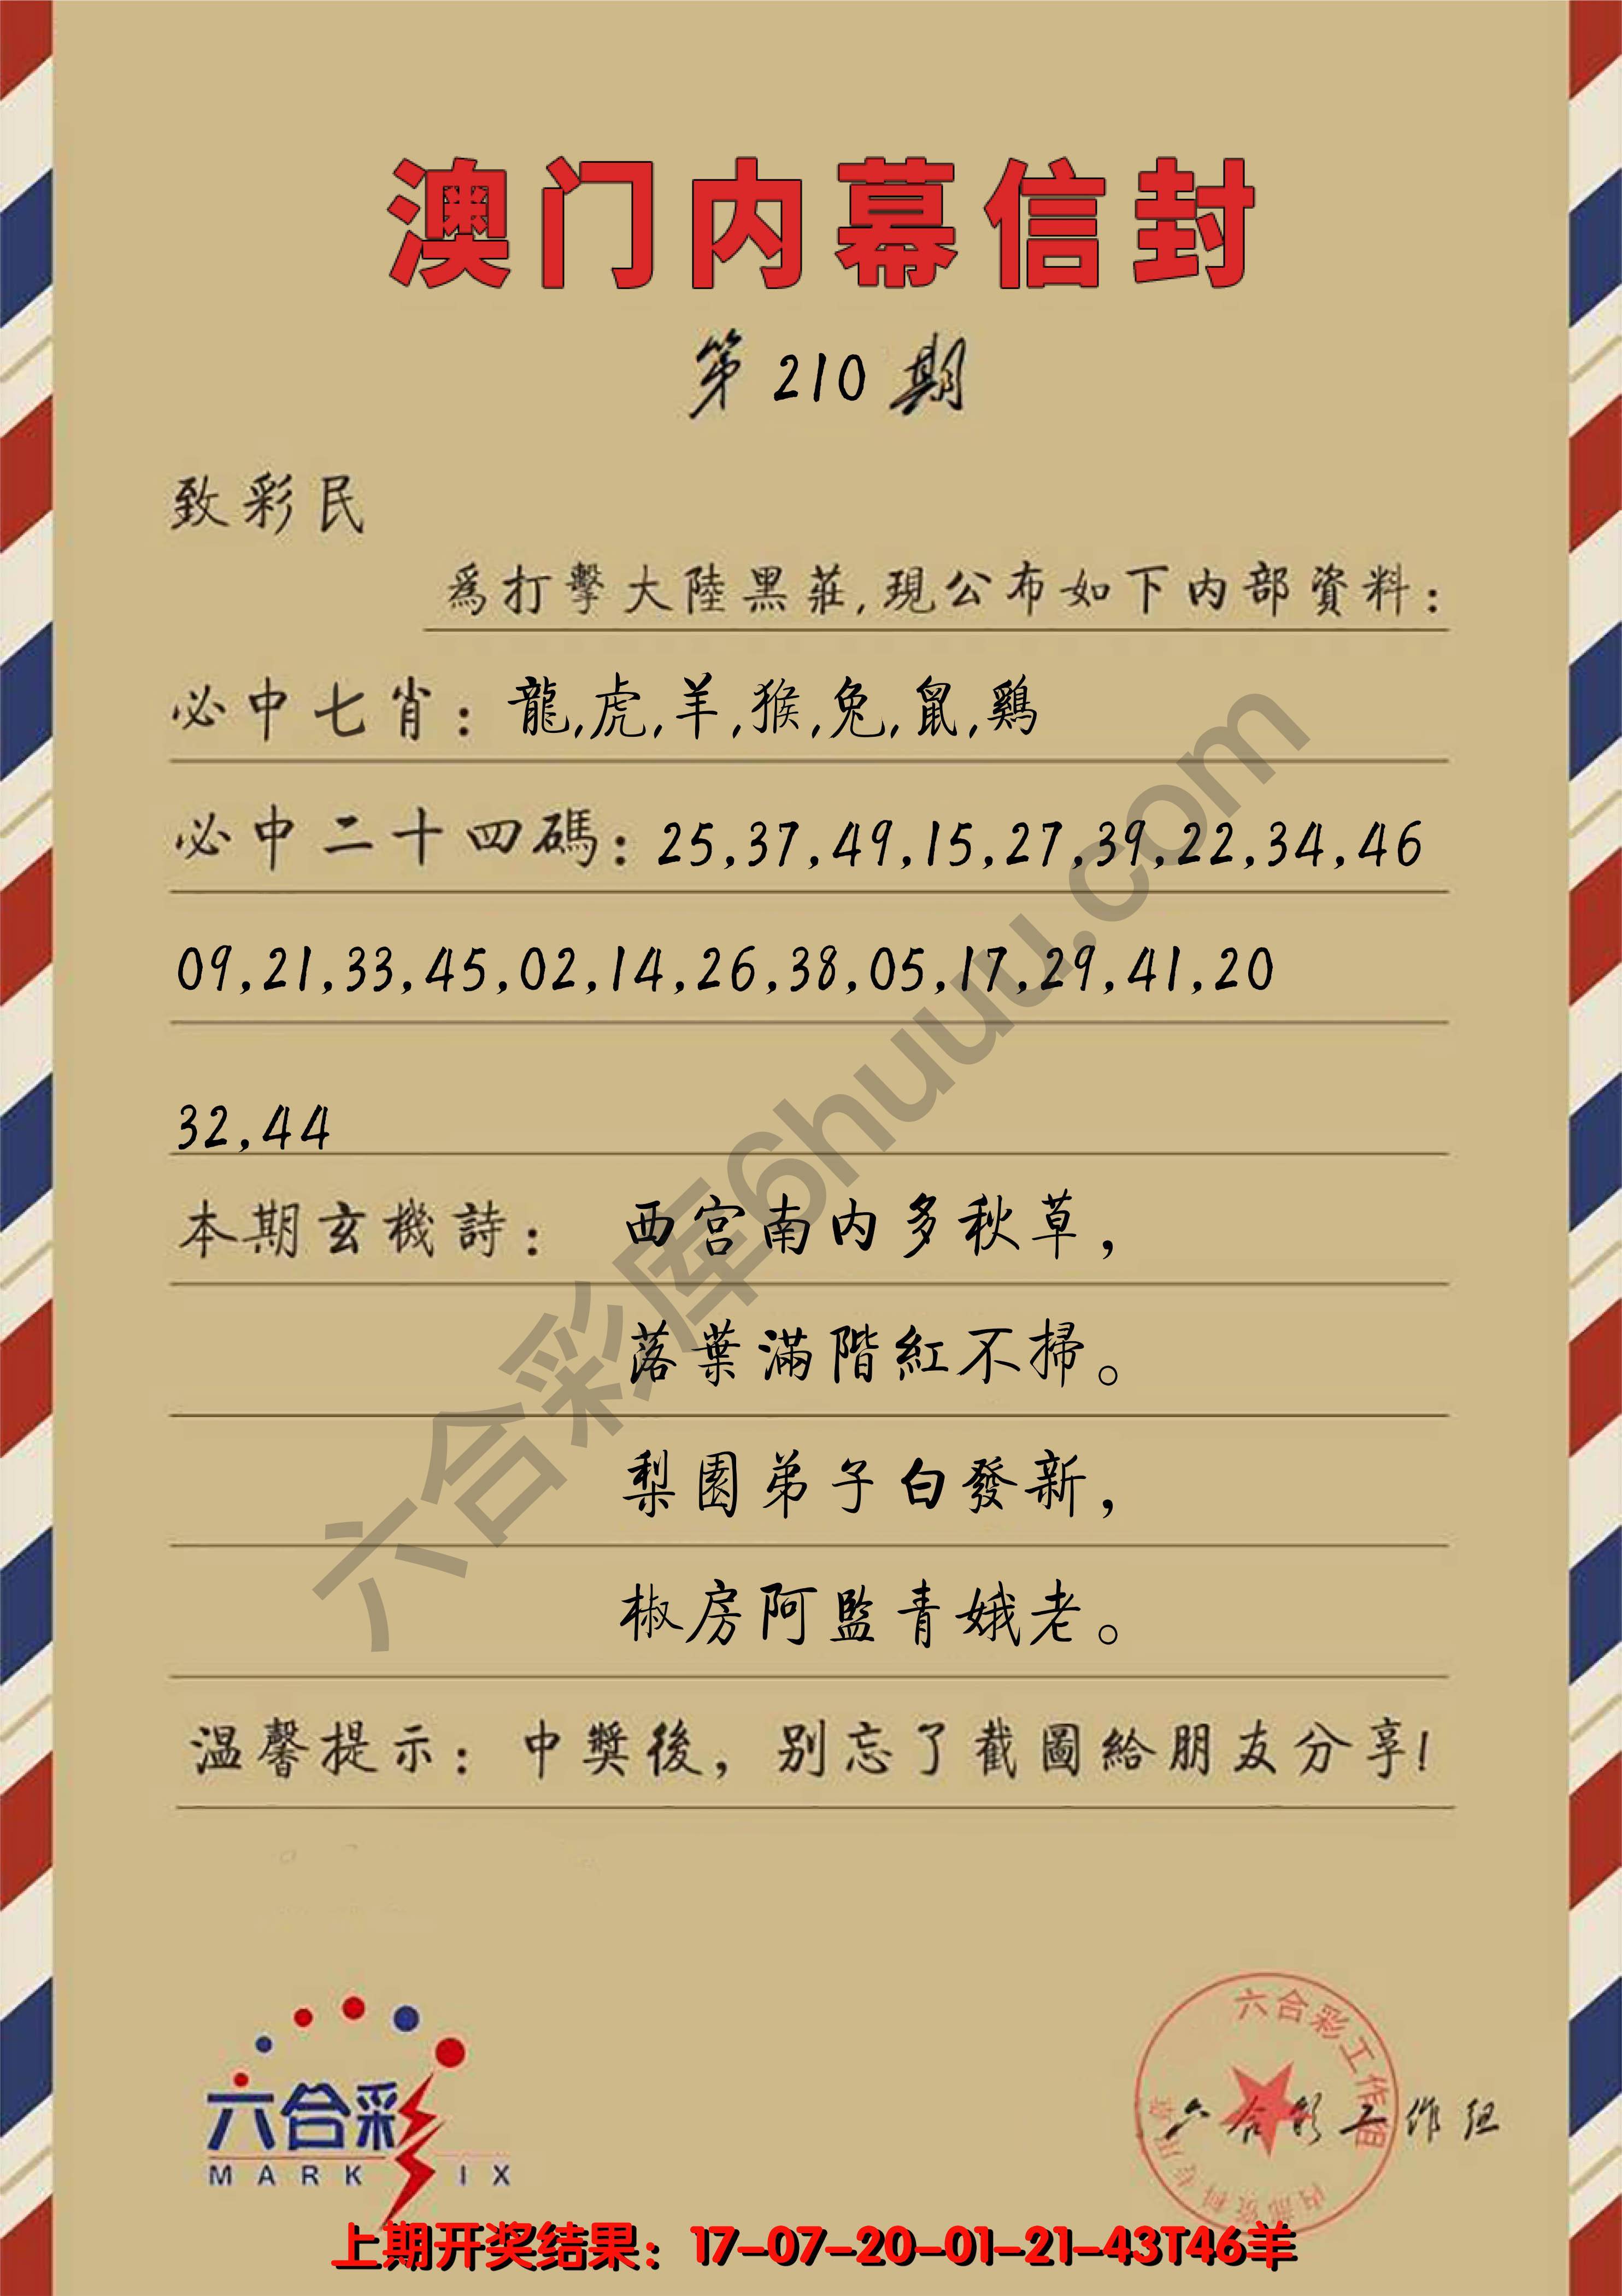 澳门内幕信封
第 210 期
致彩民
爲打擊大陸黑莊,現公布如下内部資料:
必中七肖: 龍,虎,羊,猴,兔,鼠,鷄
必中二十四碼: 25,37,49,15,27,39,22,34,46
09,21,33,45,02,14,26,38,05,17,29,41,20
32,44
本期玄機詩: 西宫南内多秋草,
落葉滿階紅不掃。
梨園弟子白發新,
椒房阿監青娥老。
温馨提示: 中獎後, 别忘了截圖給朋友分享!
六合彩库6huuu.com
六合彩
MARK SIX
六合彩工作组
内部资料专用章
六合彩工作组
上期开奖结果: 17-07-20-01-21-43T46羊